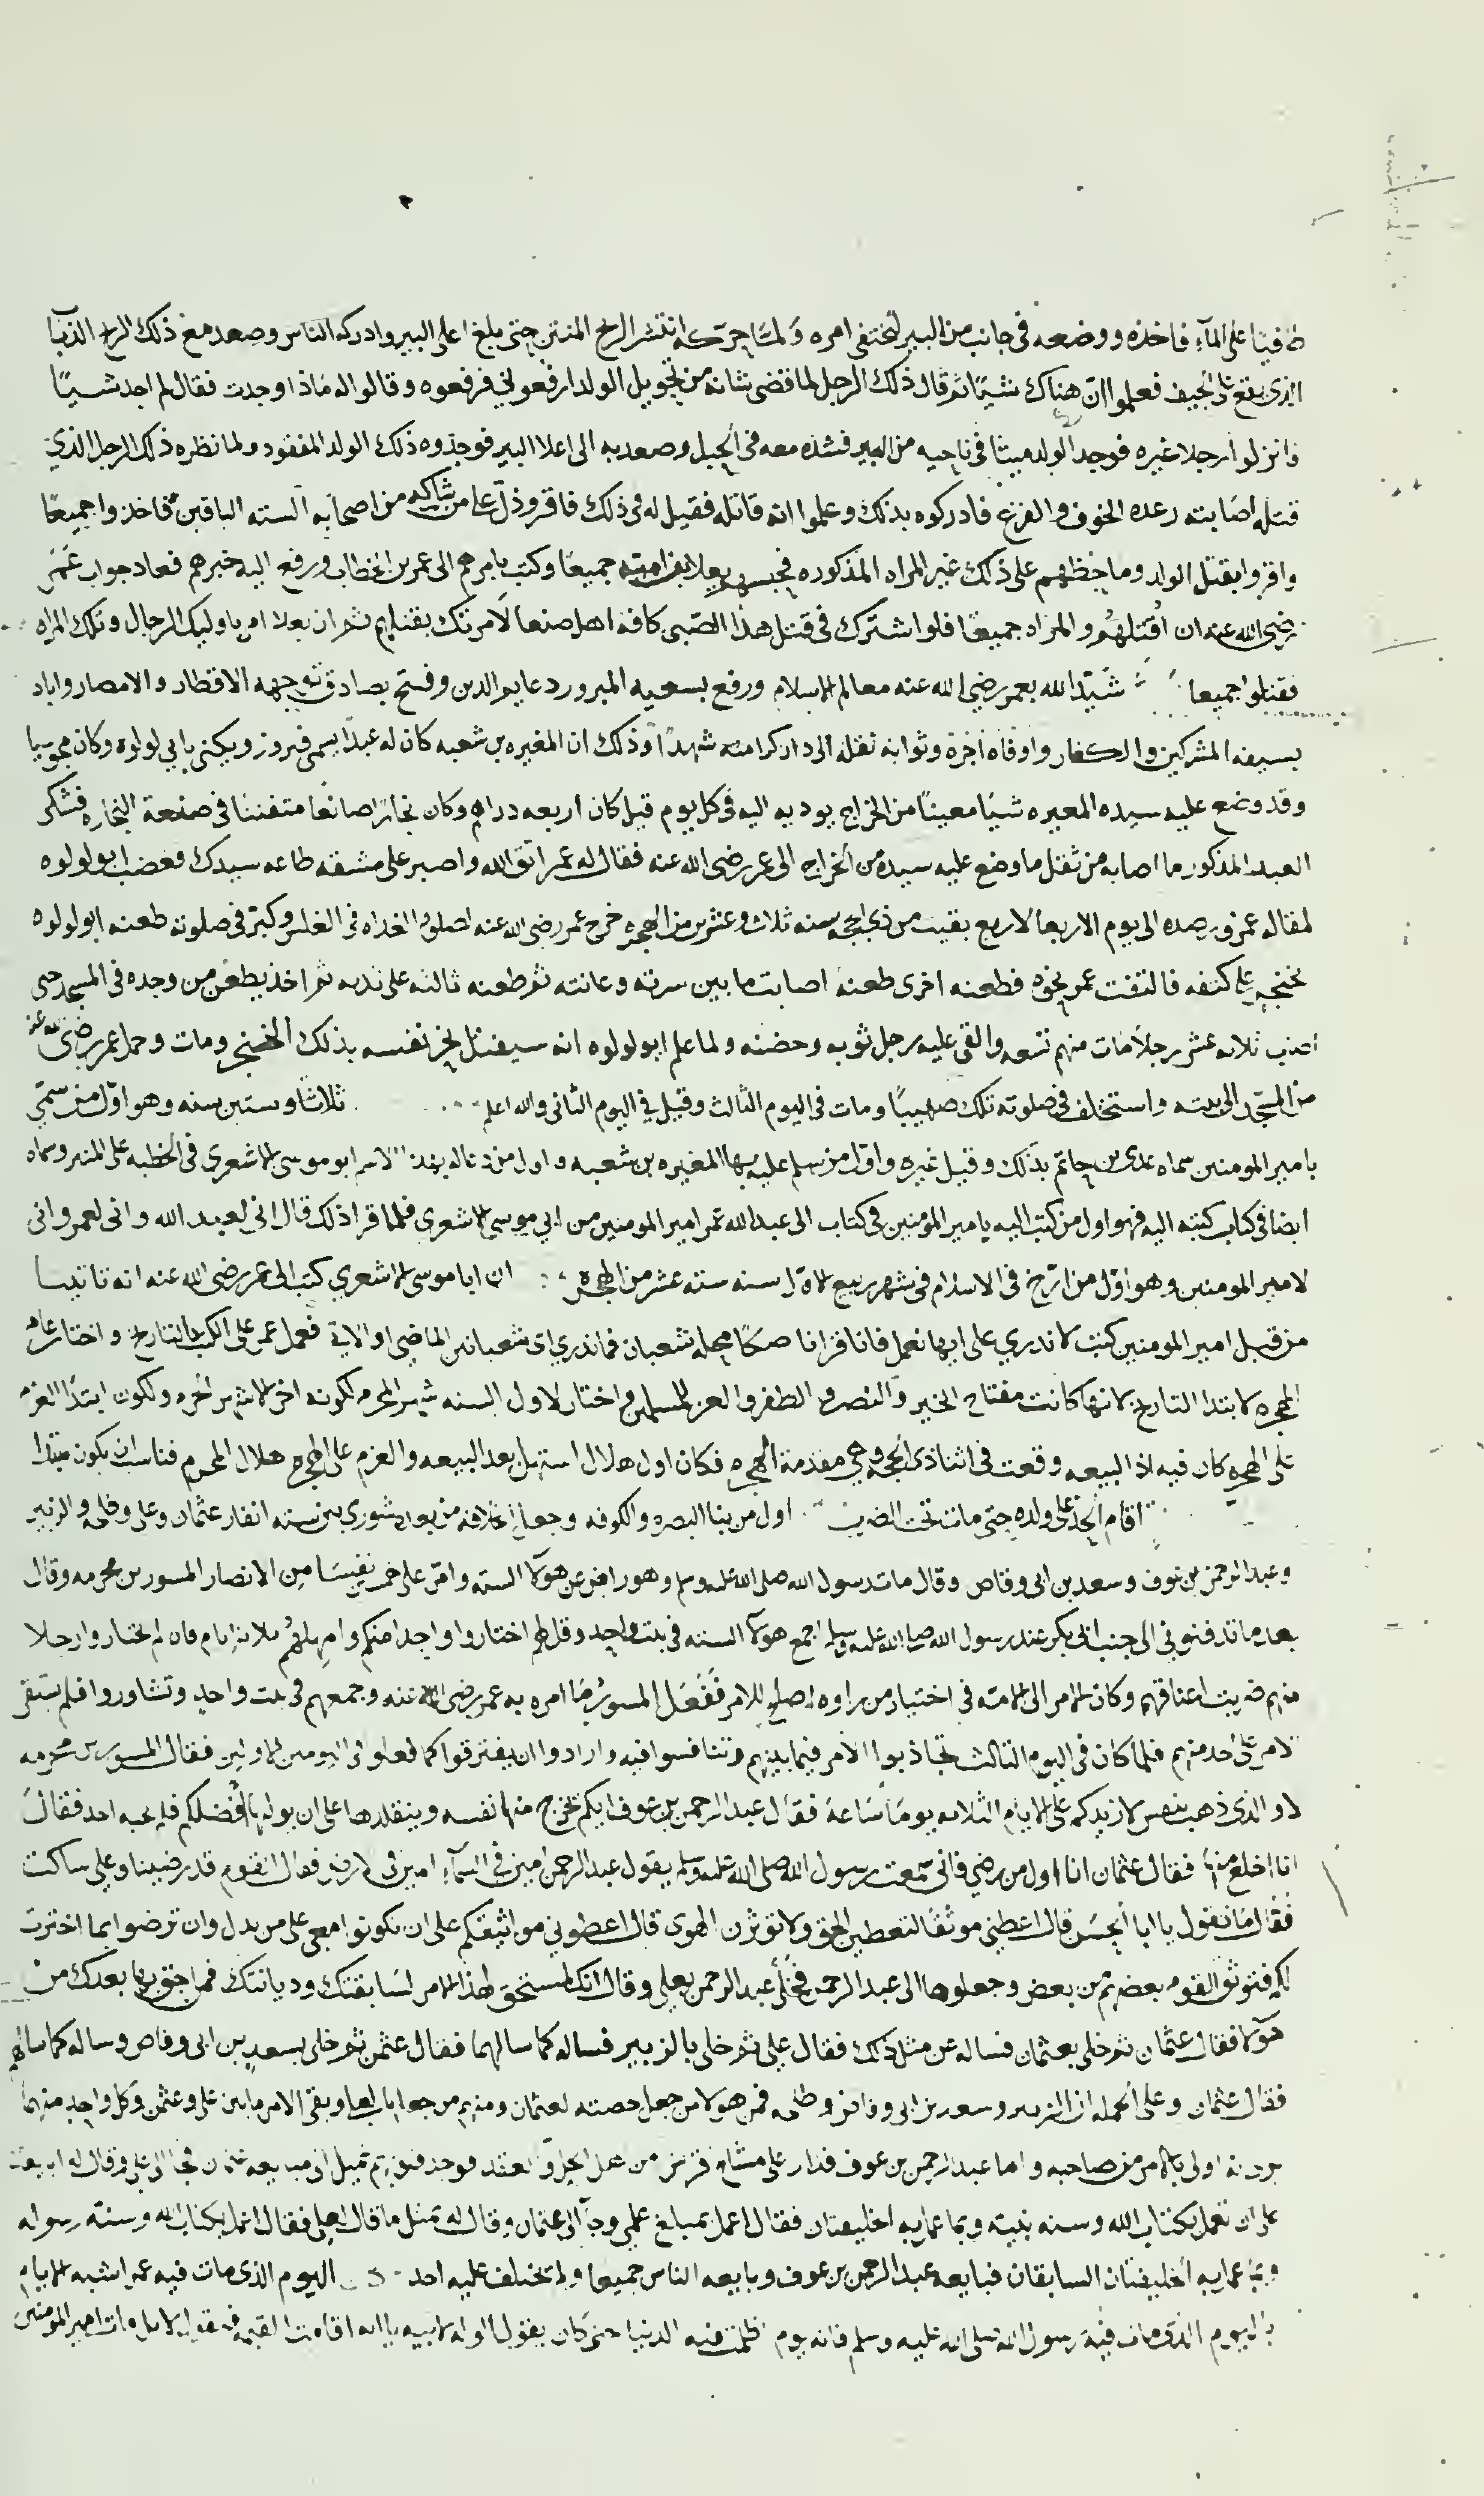 طافيًا على المآء فاخذه ووضعه فى جانب من البير لتختفى امره ولمّا حركه انتشر الريح المنتن حتى بلغ اعلى البير وادركه الناس وصعد مع ذلك الريح الذباب
الذى يقع على الجيف فعلموا انّ هناك شيئًا ثم قال ذلك الرجل لما قضى شانه من تحويل الولد ارفعونى فرفعوه وقالوا له ماذا وجدت فقال لم اجد شيئًا
فانزلوا رجلا غيره فوجد الولد ميتًا فى ناحيه من البير فشده معه فى الحبل وصعد به الى اعلا البير فوجدوه ذلك الولد المفقود ولما نظره ذلك الرجل الذي
قتله اصابته رعده الخوف والفزع فادركوه بذلك وعلموا انه قاتله فقيل له فى ذلك فاقر وذلّ على من شاكيه من اصحابه السته الباقين فاخذوا جميعًا
واقروا بقتل الولد وما حظهم على ذلك غير المراه المذكوره فحبسهم يعلا بغرامته جميعًا وكتب بامرهم الى عمر بن الخطاب ورفع اليه خبرهم فعاد جواب عمر
رضى الله عنه ان اقتلهم والمراه جميعًا فلو اشترك فى قتل هذا الصّبى كافة اهل صنعا لامرتك بقتلهم ثم ان يعلا امر باوليك الرجال وتلك المراه
فقتلوا جميعا شيّد الله بعمر رضى الله عنه معالم الاسلام ورفع بسعيه المبرور دعايم الدين وفتح بصادق توجهه الاقطار والامصار واباد
بسيفه المشركين والكفار واوفاه اجره وثوابه نقله الى دار كرامته شهيدًا وذلك ان المغيره بن شعبه كان له عبدًا يسمى فيروز ويكنى بابي لولوه وكان مجوسيا
وقد وضع عليه سيده المغيره شيًا معينًا من الخراج يوديه اليه فى كل يوم قيل كان اربعه دراهم وكان نجارًا صانعًا متفننًا فى صنعة النجاره فشكى
العبد المذكور ما اصابه من ثقل ما وضع عليه سيده من الخراج الى عمر رضى الله عنه فقال له عمر اتق الله واصبر على مشقه طاعه سيدك فغضب ابو لولوه
لمقاله عمر ورصده الى يوم الاربعا لاربع بقيت من ذى الحجه سنه ثلاث وعشرين من الهجره خرج عمر رضى الله عنه لصلوة الغداه فى الغلس وكبر فى صلوته طعنه ابو لولوه
بخنجر على كتفه فالتفت عمر نحوه فطعنه اخرى طعنة اصابت ما بين سرته وعانته ثم طعنه ثالثه على ثديه ثم اخذ يطعن من وجده فى المسجد حتى
اصاب ثلاثه عشر رجلاً مات منهم تسعه والقى عليه رجل ثوبه وحضنه ولما علم ابو لولوه انه سيقتل نحر نفسه بذلك الخنجر ومات وحمل عمر رضى الله عنه
من المسجد الى بيته واستخلف فى صلوته تلك صهيبًا ومات فى اليوم الثالث وقيل فى اليوم الثانى والله اعلم ثلاثًا وستين سنه وهو اول من سمّى
بامير المومنين سماه عدى بن حاتم بذلك وقيل غيره واوّل من سلم عليه بها المغيره بن شعبه واول من دعا له بهذا الاسم ابو موسى الاشعرى فى الخطبه على المنبر وسماه
ايضا فى كتاب كتبه اليه فهو اول من كتب اليه يا امير المومنين فى كتاب الى عبد الله عمر امير المومنين من ابى موسى الاشعرى فلما قرا ذلك قال انى لعبد الله وانى لعمر وانى
لامير المومنين وهو اوّل من ارّخ فى الاسلام فى شهر ربيع الاول سنه سته عشر من الهجره ان ابا موسى الاشعري كتب الى عمر رضى الله عنه انه تاتينا
من قبل امير المومنين كتب لا ندري على ايها نعمل فانا قرانا صكًا محله شعبان فما ندري اى شعبانين الماضي او الاتى فعمل عمر على الكتب التاريخ واختار عام
الهجره لابتدا التاريخ لانها كانت مفتاح الخير والنصر والظفر والعز للمسلمين واختار لاول السنه شهر المحرم لكونه اخر الاشهر الحرم ولكون ابتدا العزم
على الهجره كان فيه اذ البيعه وقعت فى اثنا ذى الحجه وهى مقدمة الهجره فكان اول هلال استهل بعد البيعه والعزم على الهجره هلال المحرم فناسب ان يكون مبتدا
اقام الحد على ولده حتى مات تحت الضرب اول من بنا البصره والكوفه وجعل الخلافه من بعده شورى بين سته انفار عثمان وعلى وطلحه والزبير
وعبد الرحمن بن عوف وسعد بن ابى وقاص وقال مات رسول الله صلى الله عليه وسلم وهو راض عن هولا السته وامر على خمسين نفسًا من الانصار المسور بن مخرمه وقال
بعد ما تدفنونى الى جنب ابى بكر عند رسول الله صلى الله عليه وسلم اجمع هولا السته فى بيت واحد وقل لهم اختاروا واحدا منكم وامهلهم ثلاثه ايام فان لم يختاروا رجلا
منهم ضربت اعناقهم وكان الامر الى الامه فى اختيار من راوه اصلح للامر ففعل المسور ما امره به عمر رضى الله عنه وجمعهم فى بيت واحد وتشاوروا فلم يستقر
الامر على احد منهم فلما كان فى اليوم الثالث تجاذبوا الامر فيما بينهم وتنافسوا فيه وارادوا ان يفترقوا كما فعلوا فى اليومين الاولين فقال المسور بن مخرمه
لا والذى ذهب بنفس لا ازيدكم على الايام الثلاثه يومًا ساعة فقال عبد الرحمن بن عوف ايكم يخرج منها نفسه ويتقلدها على ان يوليها افضلكم فلم يجبه احد فقال
انا اخلع منها فقال عثمان انا اول من رضى فانى سمعت رسول الله صلى الله عليه وسلم يقول عبد الرحمن امين فى السمآء امين فى الارض فقال القوم قد رضينا وعلى ساكت
فقال ما تقول يا ابا الحسن قال اعطنى موثقًا لتعطين الحق ولا توثرن الهوى قال اعطونى مواثيقكم على ان تكونوا معى على من بدل وان ترضوا بما اخترت
لكم فتوثق القوم بعضهم من بعض وجعلوها الى عبد الرحمن فخلى عبد الرحمن بعلى وقال انك لمستحق لهذا الامر لسابقتك وديانتك فمن احق بها بعدك من
هولا فقال عثمان ثم خلى بعثمان فساله عن مثل ذلك فقال على ثم خلى بالزبير فساله كما سالهما فقال عثمن ثم خلى بسعد بن ابى وقاص وساله كما سالهم
فقال عثمان وعلى الجمله ان الزبير وسعد بن ابى وقاص وطلحه فمن هولا من جعل حصته لعثمان ومنهم من جعلها لعلى وبقى الامر ما بين على وعثمن وكل واحد منهما
يرى انه اولى بالامر من صاحبه واما عبد الرحمن بن عوف فدار على مشايخ قريش من اهل الحل والعقد فوجد قلوبهم تميل الى مبايعه عثمان فجا الى على وقال له ابايعك
على ان تعمل بكتاب الله وسنه نبيه وبما عمل به الخليفتان فقال اعمل بمبلغ علمى وجآ الى عثمان وقال له بمثل ما قال لعلى فقال اعمل بكتاب الله وسنة رسوله
وبما عمل به الخليفتان السابقان فبايعه عبد الرحمن بن عوف وبايعه الناس جميعا ولم يختلف عليه احد اليوم الذى مات فيه عمر اشبه الايام
باليوم الذى مات فيه رسول الله صلى الله عليه وسلم فانه يوم اظلمت فيه الدنيا حتى كان يقول الولد لابيه يا ابه اقامت القيمه فيقول لا بل مات امير المومنين